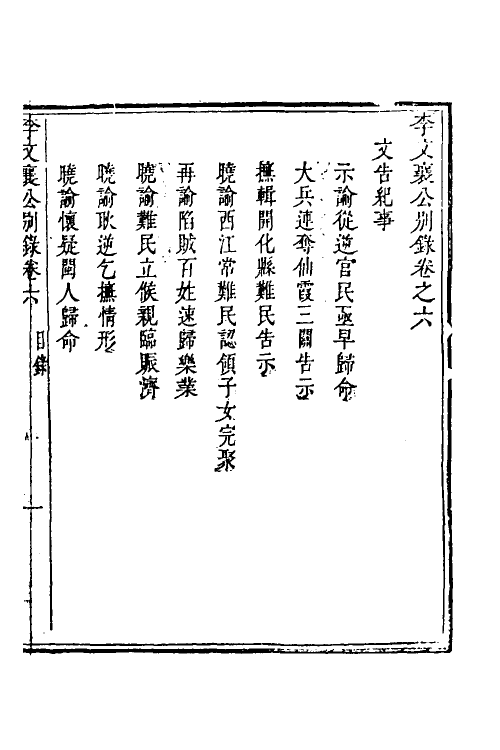 李文襄公别錄卷之六
文告紀事
示諭從逆官民亟早歸命
大兵連奪仙霞三關告示
撫輯開化縣難民告示
曉諭西江常難民認領子女完聚
再諭陷賊百姓速歸樂業
曉諭難民立候親臨賑濟
曉諭耿逆乞撫情形
曉諭懷疑閩人歸命
李文襄公别錄卷六 目錄